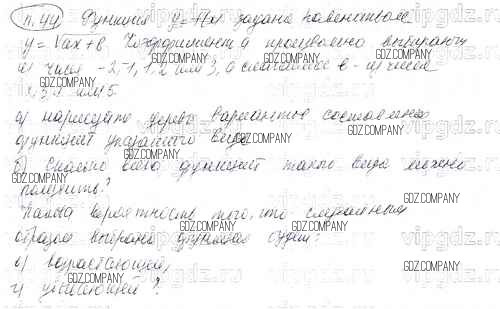 п. 44 Функция y = f(x) задана равенством
y = √ax + в. Коэффициент а произвольно выбирают
из чисел -2, -1, 1, 2 или 3, а слагаемое в - из чисел
или 5.
а) нарисуйте дерево вариантов составления
функций указанного вида
GDZ.COMPANY GDZ.COMPANY GDZ.COMPANY
б) сколько всего функций такого вида можно
получить?
Какова вероятность того, что случайным
образом выбрана функция будет:
в) возрастающей,
г) убывающей?
GDZ.COMPANY
vipgdz.ru